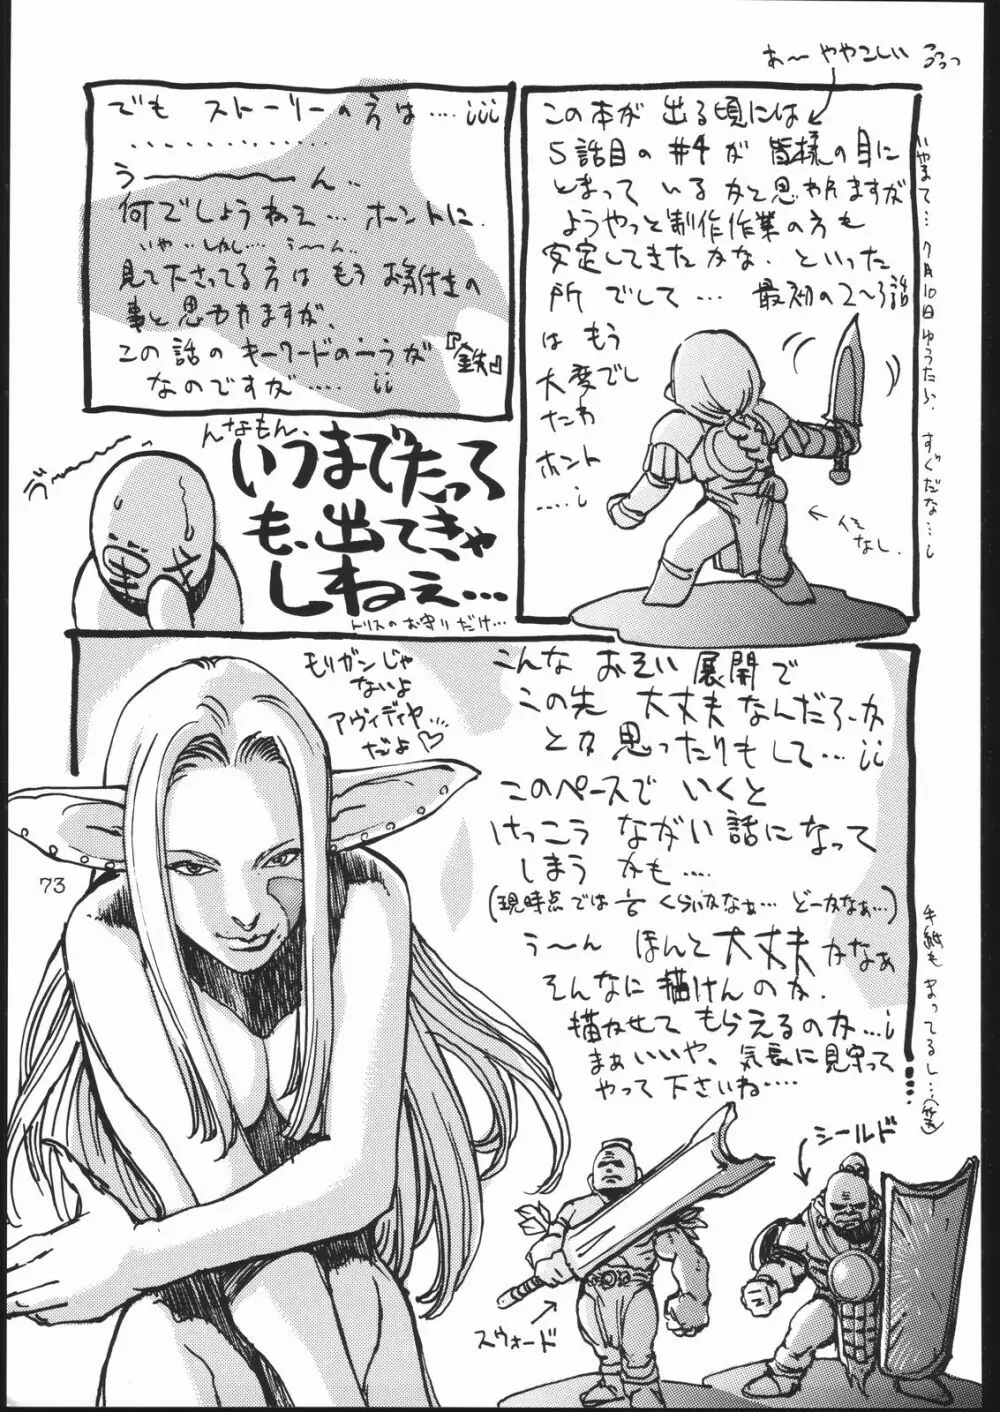 あ〜ややこしい
この本が出る頃には
5話目の#4が皆様の目に
とまっているかと思われますが
ようやっと制作作業の方も
安定してきたかな、といった
所でして…最初の2〜3話
はもう
大変でし
たわ
ホント
……
いやまて…7月10日ゆうたら、すぐだな…
でもストーリーの方は……
う―――ん..
何でしょうねえ…ホントに.
いや..しかし…う〜ん..
見て下さってる方はもうお気付きの
事と思われますが、
この話のキーワードの一つが『鉄』
なのですが……
んなもん、
いつまでたって
も、出てきゃ
しねぇ…
トリスのお守りだけ…
こんなおそい展開で
この先大丈夫なんだろーか
とか思ったりもして…
このペースでいくと
けっこうながい話になって
しまうかも……
う〜んほんと大丈夫かなぁ
そんなに描けんのか.
描かせてもらえるのか…
まぁいいや、気長に見守って
やって下さいね……
手紙もまってるし…(笑)
モリガンじゃ
ないよ
アヴィディヤ…
だよ♡
シールド
スウォード
73